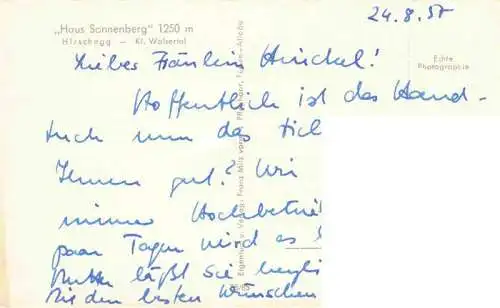 „Haus Sonnenberg" 1250 m
Hirschegg — Kl. Walsertal
24.8.57
Echte
Photographie
Liebes Fräulein Hinckel!
Hoffentlich ist das Hand-
tuch nun das
Ihnen gut? Wi
immer Hochbetrie
paar Tagen wird es
Mutter läßt sie herzli
Mit den besten Wünschen
Eigentum u. Verlag: Franz Milz vorm.